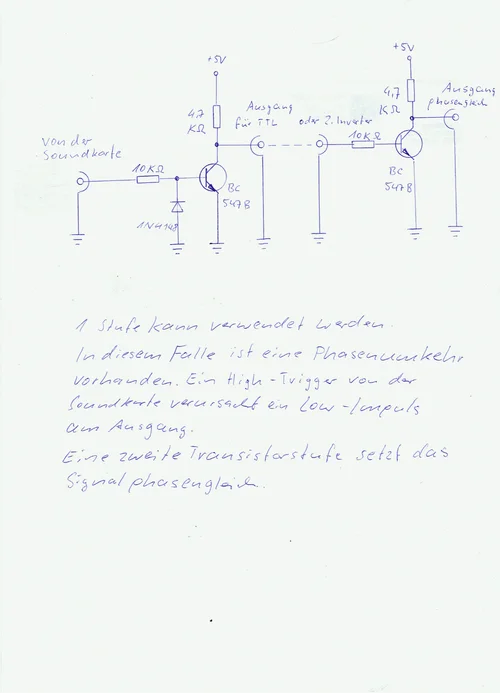 +5V
+5V
4,7
KΩ
Ausgang
für TTL
oder 2. Inverter
4,7
KΩ
Ausgang
phasengleich
von der
Soundkarte
10KΩ
10KΩ
BC
547B
BC
547B
1N4148
1 Stufe kann verwendet werden.
In diesem Falle ist eine Phasenumkehr
vorhanden. Ein High-Trigger von der
Soundkarte verursacht ein Low-Impuls
am Ausgang.
Eine zweite Transistorstufe setzt das
Signal phasengleich.